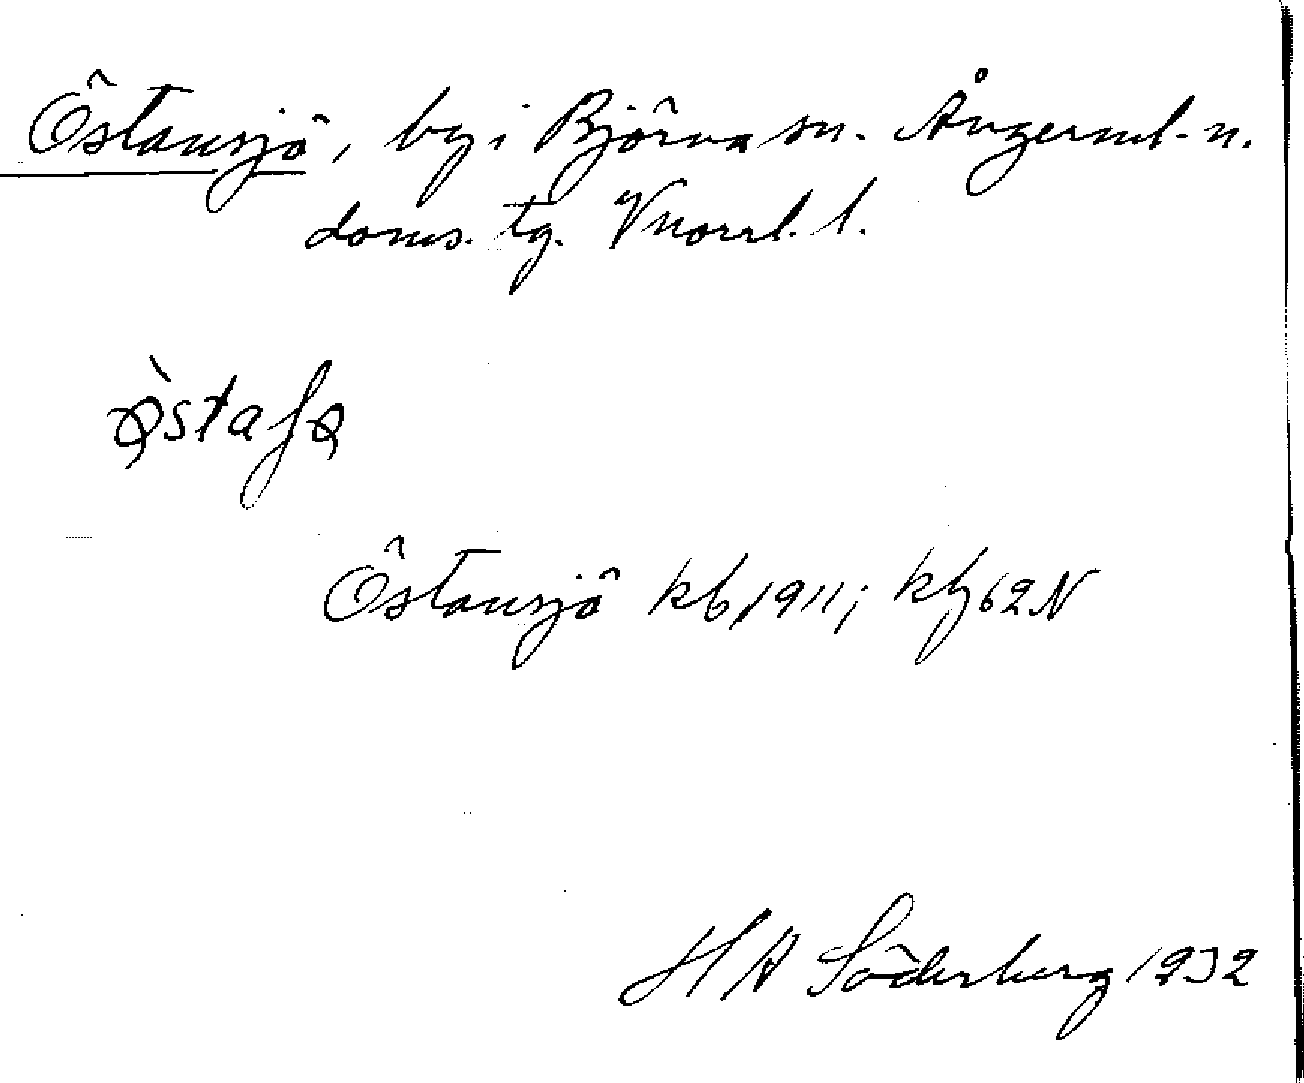 Östansjö, by i Björna sn. Ångerml. n.
doms. tg. Vnorrl. l.
Östansjö kb 1911; kbg 62 N
H A Söderberg 1932